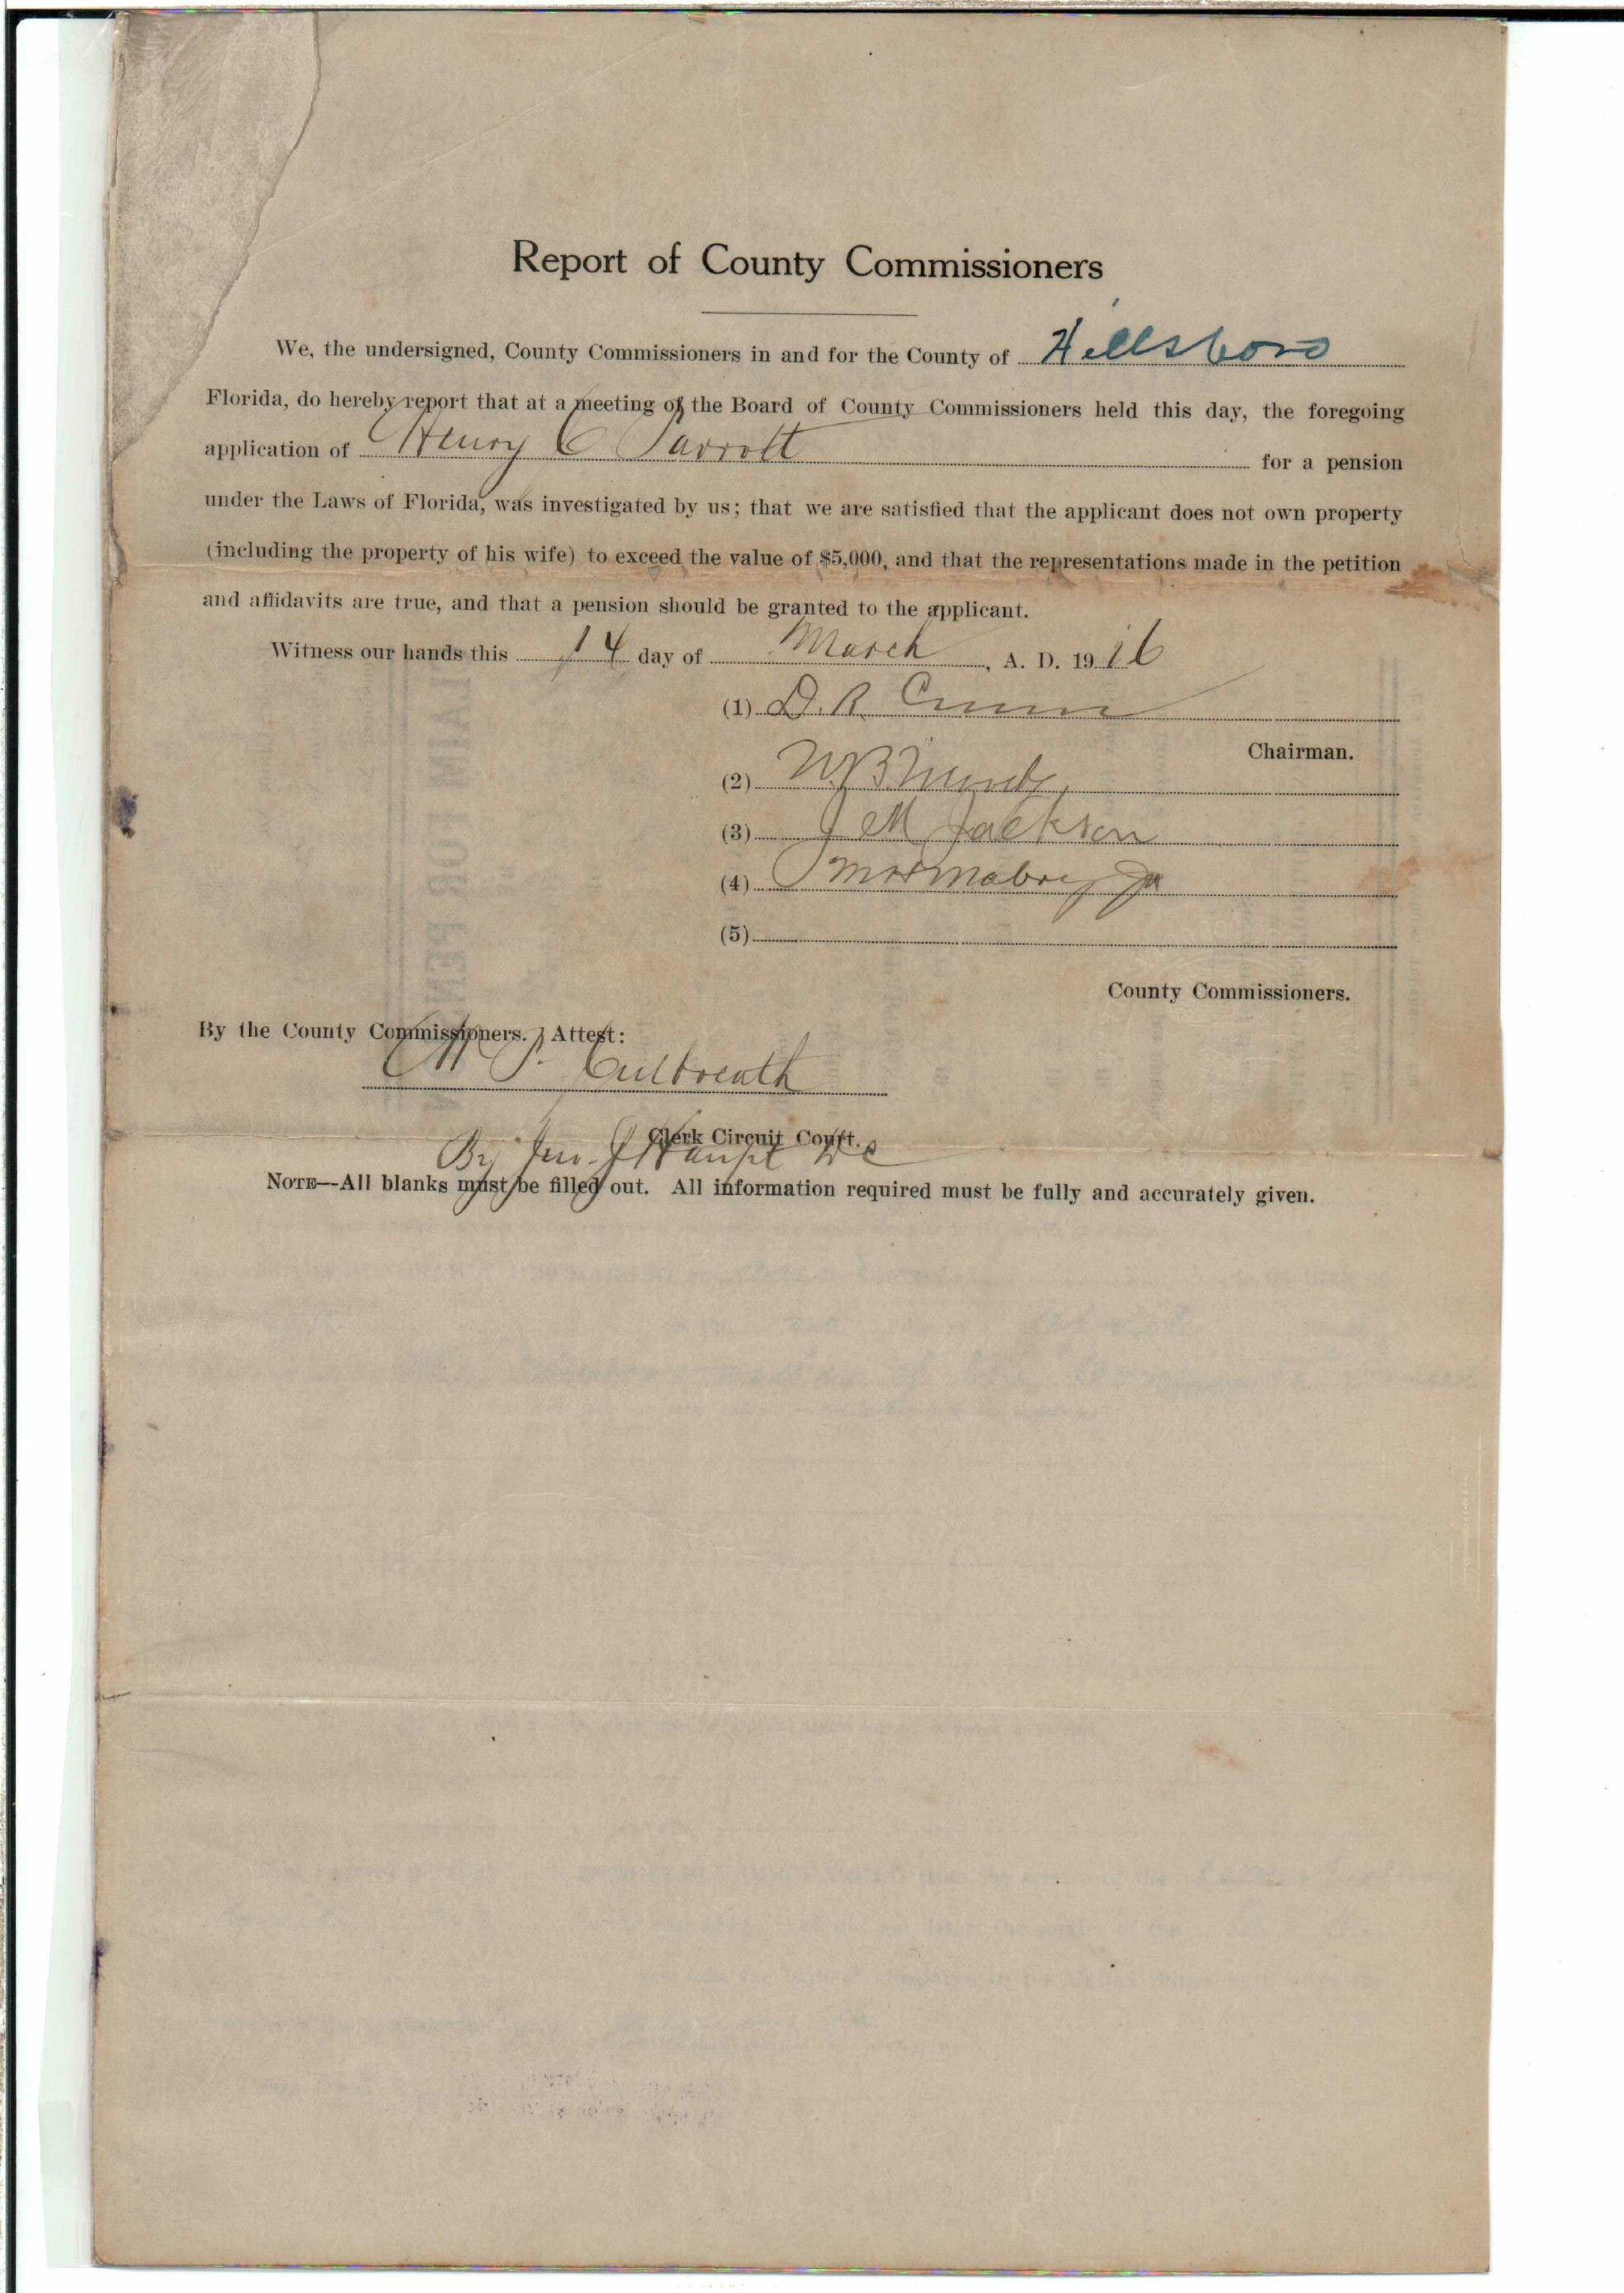 Report of County Commissioners
We, the undersigned, County Commissioners in and for the County of Hillsboro
Florida, do hereby report that at a meeting of the Board of County Commissioners held this day, the foregoing
application of Henry C Parrott for a pension
under the Laws of Florida, was investigated by us; that we are satisfied that the applicant does not own property
(including the property of his wife) to exceed the value of $5,000, and that the representations made in the petition
and affidavits are true, and that a pension should be granted to the applicant.
Witness our hands this 14 day of March, A. D. 1916
(1) D. R.
Chairman.
(2) W B
(3) J M Jackson
(4) Mabry Jr
(5)
County Commissioners.
By the County Commissioners. Attest:
Culbreath
Clerk Circuit Court.
By Jno. J Haupt DC
NOTE—All blanks must be filled out. All information required must be fully and accurately given.